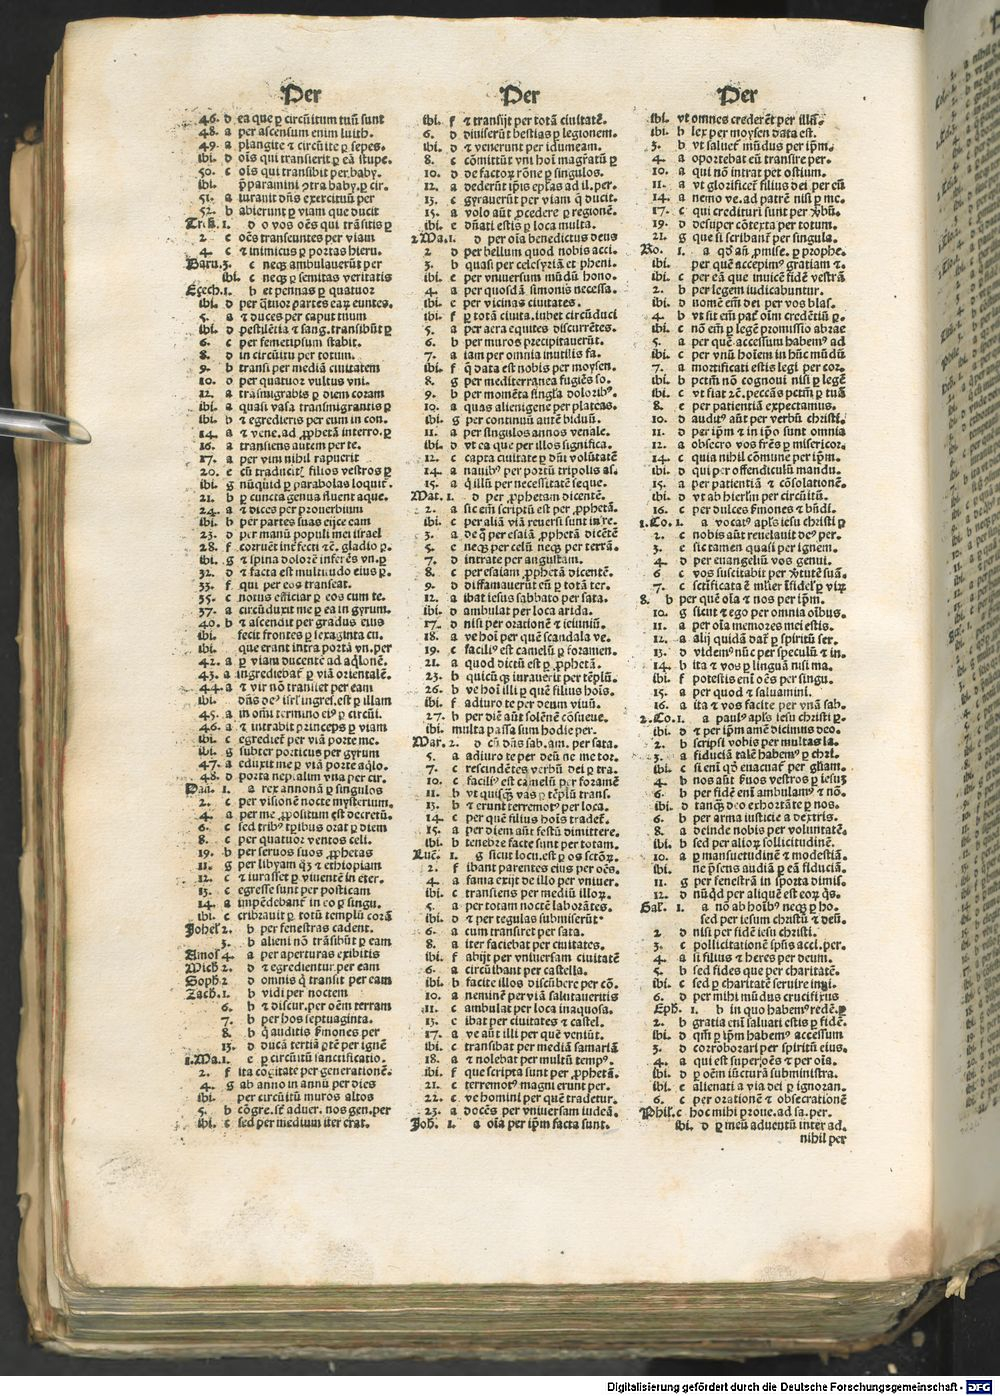 Per
46. d ea que ꝑ circūitum tuū sunt
48. a per ascensum enim luith.
49. a plangite ⁊ circūite ꝑ sepes.
ibi. d oīs qui transierit ꝑ eā stupe.
50. c oīs qui transibit per baby.
ibi. p̄paramini ꝯtra baby. ꝑ cir.
51. a iurauit dn̄s exercituū per
52. b abierunt ꝑ viam que ducit
Tren. 1. d o vos oēs qui trāsitis ꝑ
2 c oēs transeuntes per viam
4. c ⁊ inimicus ꝑ portas hieru.
Baru. 3. c neqꝫ ambulauerūt per
ibi. c neqꝫ ꝑ semitas veritatis
Ezech. 1. b et pennas ꝑ quatuor
ibi. d per q̄tuor partes eaꝝ euntes.
5. a ⁊ duces per caput tuum
ibi. d pestilētia ⁊ sang. transibūt ꝑ
6. c per femetipsum stabit.
8. d in circūitu per totum.
9. b transi per mediā ciuitatem
10. d per quatuor vultus vni.
12. a trāsmigrabis ꝑ diem coram
ibi. a quasi vasa transmigrantis ꝑ
ibi. b ⁊ egredieris per eum in con.
14. a ⁊ vene. ad ꝓphetā interro. ꝑ
16. a transiens autem per te.
17. a per vim nihil rapuerit
20. e cū traduciꞇ filios vestros ꝑ
ibi. g nūquid ꝑ parabolas loquiꞇ
21. b ꝑ cuncta genua fluent aque.
24. a ⁊ dices per prouerbium
ibi. b per partes suas eijce eam
23. d per manū populi mei israel
28. f corruēt infecti ⁊c. gladio ꝑ.
ibi. g ⁊ spina dolorē inferēs vn. ꝑ
32. d ⁊ facta est multitudo eius ꝑ.
33. f qui per eos transeat.
35. c notus efficiar ꝑ eos cum te.
37. a circūduxit me ꝑ ea in gyrum.
40. b ⁊ ascendit per gradus eius
ibi. fecit frontes ꝑ sexaginta cu.
ibi. que erant intra portā vn. per
42. a ꝑ viam ducente ad aq̇lonē.
43. a ingrediebaꞇ ꝑ viā orientalē.
44. a ⁊ vir nō transiet per eam
ibi. dn̄s deꝰ isrl̄ ingres. est ꝑ illam
45. a in omī termino eiꝰ ꝑ circūi.
46. a ⁊ intrabit princeps ꝑ viam
ibi. c egredieꞇ per viā porte me.
ibi. g subter porticus per gyrum
47. a eduxit me ꝑ viā porte aq̇lo.
48. d porta nepꞇalim vna per cir.
Dan. 1. a rex annonā ꝑ singulos
2. c per visionē nocte mysterium.
4. a per me ꝓpositum est decretū.
6. c sed tribꝰ tꝑibus orat ꝑ diem
8. c per quatuor ventos celi.
19. b per seruos suos ꝓphetas
11. g per libyam qꝫ ⁊ ethiopiam
12. c ⁊ iurasset ꝑ viuentē in eter.
13. c egresse sunt per posticam
14. a impēdebanꞇ in eo ꝑ singu.
ibi. c cribrauit ꝑ totū templū corā
Johel 2. b per fenestras cadent.
3. b alieni nō trāsibūt ꝑ eam
Amos 4. a per aperturas exibitis
Mich 2. d ⁊ egredientur per eam
Soph 2 d omnis q̇ transit per eam
Zach. 1. b vidi per noctem
6. b ⁊ discur. per oēm terram
7. b per hos septuaginta.
8. b q̇ auditis sermones per
13. d ducā tertiā ꝑtē per ignē
1. Ma. 1. e ꝑ circūitū sanctificatio.
2. f ita cogitate per generationē.
4. g ab anno in annū per dies
ibi. per circūitū muros altos
5. b cōgre. sꞇ aduer. nos gen. per
ibi. c sed per medium iter erat.
Per
ibi. f ⁊ transijt per totā ciuitatē.
6. d diuiserūt bestias ꝑ legionem.
ibi. d ⁊ venerunt per idumeam.
8. c cōmittūt vni hoī magr̄atū ꝑ
10. d de factoꝝ rōne ꝑ singulos.
12. a dederūt ip̄is ep̄las ad il. per.
13. c gyrauerūt per viam q̄ ducit.
15. a volo aūt ꝓcedere ꝑ regionē.
ibi. e dn̄ati estis ꝑ loca multa.
2 Ma. 1. d per oīa benedictus deus
2 d per bellum quod nobis acci.
3. b quasi per celsyriā et pheni.
ibi. e per vniuersum mūdū hono.
4. a per quosdā simonis necessa.
ibi. c per vicinas ciuitates.
ibi. f ꝑ totā ciuita. iubet circūduci
5. a per aera equites discurrētes.
6. b per muros precipitauerūt.
7. a iam per omnia inutilis fa.
ibi. f q̄ data est nobis per moysen.
8. g per mediterranea fugiēs so.
9. b per momēta singl̄a doloribꝰ.
10. a quas alienigene per plateas.
ibi. g per continuū antē biduū.
11. a per singulos annos venale.
ibi. d vt ea que per illos significa.
12. c capta ciuitate ꝑ dn̄i volūtatē
14. a nauibꝰ per portū tripolis as.
15. a q̇ illū per necessitatē seque.
Mat. 1. d per ꝓphetam dicentē.
2. a sic em̄ scriptū est per ꝓphetā.
ibi. c per aliā viā reuersi sunt in re.
3. a de q̇ per esaiā ꝓphetā dicētē
5. c neqꝫ per celū neqꝫ per terrā.
7. d intrate per angustam.
8. c per esaiam ꝓphetā dicentē.
9. d diffamauerūt eū ꝑ totā ter.
12. a ibat iesus sabbato per sata.
ibi. d ambulat per loca arida.
17. d nisi per orationē ⁊ ieiuniū.
18. a ve hoī per quē scandala ve.
19. c faciliꝰ est camelū ꝑ foramen.
21. a quod dictū est ꝑ ꝓphetā.
23. b quicūqꝫ iurauerit per tēplū.
26. b ve hoī illi ꝑ quē filius hoīs.
ibi. f adiuro te per deum viuū.
27. b per diē aūt solēnē cōsueue.
ibi. multa passa sum hodie per.
Mar. 2. d cū dn̄s sab. am. per sata.
5. a adiuro te per deū ne me tor.
7. c rescindētes verbū dei ꝑ tra.
10. c faciliꝰ est camelū per foramē
11. b vt quisqꝫ vas ꝑ tēplū trans.
13. b ⁊ erunt terremotꝰ per loca.
14. c per quē filius hoīs tradeꞇ.
15. a per diem aūt festū dimittere.
ibi. b tenebre facte sunt per totam.
Luc̄. 1. g sicut locu. est ꝑ os sctōꝝ.
2. f ibant parentes eius per oēs.
4. a fama exijt de illo per vniuer.
ibi. c transiens per mediū illoꝝ.
5. a per totam noctē laborātes.
ibi. d ⁊ per tegulas submiserūt
6. a cum transiret per sata.
8. a iter faciebat per ciuitates.
ibi. f abijt per vniuersam ciuitatē
6. a circūibant per castella.
ibi. b facite illos discūbere per cō.
10. a neminē per viā salutaueritis
11. c ambulat per loca inaquosa.
13. c ibat per ciuitates ⁊ castel.
17. a ve aūt illi per quē veniūt.
ibi. c transibat per mediā samariā
18. a ⁊ nolebat per multū tempꝰ.
ibi. f que scripta sunt per ꝓphetā.
21. c terremotꝰ magni erunt per.
22. c ve homini per quē tradetur.
23. a docēs per vniuersam iudeā.
Joh. 1. a oīa per ip̄m facta sunt.
Per
ibi. vt omnes crederēt per illū.
ibi. b lex per moysen data est.
3. b vt salueꞇ mūdus per ip̄m.
4. a oportebat eū transire per.
10. a qui nō intrat per ostium.
11. a vt glorificeꞇ filius dei per eū
14. a nemo ve. ad patrē nisi ꝑ me.
17. c qui credituri sunt per v̓bū.
19. d desuper cōtexta per totum.
21. g que si scribanꞇ per singula.
Ro. 1. a qd̓ añ ꝓmise. ꝑ prophe.
ibi. per quē accepimꝰ gratiam ⁊.
ibi. c per eā que inuicē fidē vestrā
2. b per legem iudicabuntur.
ibi. d nomē em̄ dei per vos blas.
4. b vt sit em̄ paꞇ oīm credētiū ꝑ.
ibi. c nō em̄ ꝑ legē promissio abrae
5. a per quē accessum habemꝰ ad
ibi. c per vnū hoīem in hūc mūdū
7. a mortificati estis legi per cor.
ibi. b pctm̄ nō cognoui nisi ꝑ legē
ibi. c vt fiat ⁊c. peccās pctm̄ ꝑ tuū
8. e per patientiā expectamus.
10. d auditꝰ aūt per verbū christi.
11. d per ip̄m ⁊ in ip̄o sunt omnia
12. a obsecro vos fr̄es ꝑ misericor.
14. c quia nihil cōmune per ip̄m.
ibi. d qui per offendiculū mandu.
15. a per patientiā ⁊ cōsolationē.
ibi. d vt ab hierlm̄ per circūitū.
16. c per dulces sermones ⁊ bn̄di.
1. Co. 1. a vocatꝰ apl̄s iesu christi ꝑ
2. c nobis aūt reuelauit deꝰ per.
3. e sic tamen quasi per ignem.
4. d per euangeliū vos genui.
6 c vos suscitabit per v̓tutē suā.
7. c sctīficata ē ml̓ier īfidel̓ ꝑ virꝝ
8. b per quē oīa ⁊ nos per ip̄m.
10. g sicut ⁊ ego per omnia oībus.
11. a per oīa memores mei estis.
12. a alij quidā daꞇ ꝑ spiritū ser.
13. d videmꝰ nūc per speculū ⁊ in.
14. b ita ⁊ vos ꝑ linguā nisi ma.
ibi. f potestis enī oēs per singu.
15. a per quod ⁊ saluamini.
16. a ita ⁊ vos facite per vnā sab.
2. Co. 1. a paulꝰ apl̄s iesu christi ꝑ.
ibi. d ⁊ per ip̄m amē dicimus deo.
2. b scripsi vobis per multas la.
3. a fiduciā talē habemꝰ ꝑ chr̄i.
ibi. c si enī qd̓ euacuaꞇ per gl̄iam.
4. b nos aūt s̓uos vestros ꝑ iesuꝫ
5. b per fidē enī ambulamꝰ ⁊ nō.
ibi. d tanqꝫ deo exhortāte ꝑ nos.
6. b per arma iusticie a dextris.
8. a deinde nobis per voluntatē.
ibi. b sed per alioꝝ sollicitudinē.
10. a ꝑ mansuetudinē ⁊ modestiā.
ibi. ne p̄sens audiā ꝑ eā fiduciā.
11. g per fenestrā in sporta dimis.
12. d nūqd̓ per aliquē est eoꝝ qͦs.
Gal. 1. a nō ab hoībꝰ neqꝫ ꝑ ho.
sed per iesum christū ⁊ deū.
2 d nisi per fidē iesu christi.
3. c pollicitationē sp̄us acci. per.
4. a si filius ⁊ heres per deum.
5. b sed fides que per charitatē.
ibi. c sed ꝑ charitatē seruire inui.
6. d per mihi mūdus crucifixus
Eph. 1. b in quo habemꝰ redē. ꝑ
2. b gratia enī saluati estis ꝑ fidē.
ibi. d qm̄ ꝑ ip̄m habemꝰ accessum
3. d corroborari per spiritū eius.
4. a qui est super oēs ⁊ per oīa.
ibi. d ꝑ oēm iūcturā subministra.
ibi. e alienati a via dei ꝑ ignoran.
6. c per orationē ⁊ obsecrationē
Phil. c hoc mihi proue. ad sa. per.
ibi. d ꝑ meū aduentū inter ad.
nihil per
Digitalisierung gefördert durch die Deutsche Forschungsgemeinschaft - DFG